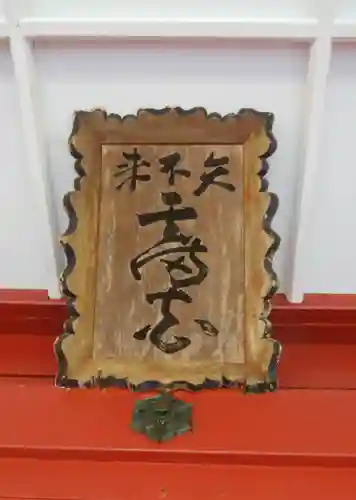 矢不来
天満宮